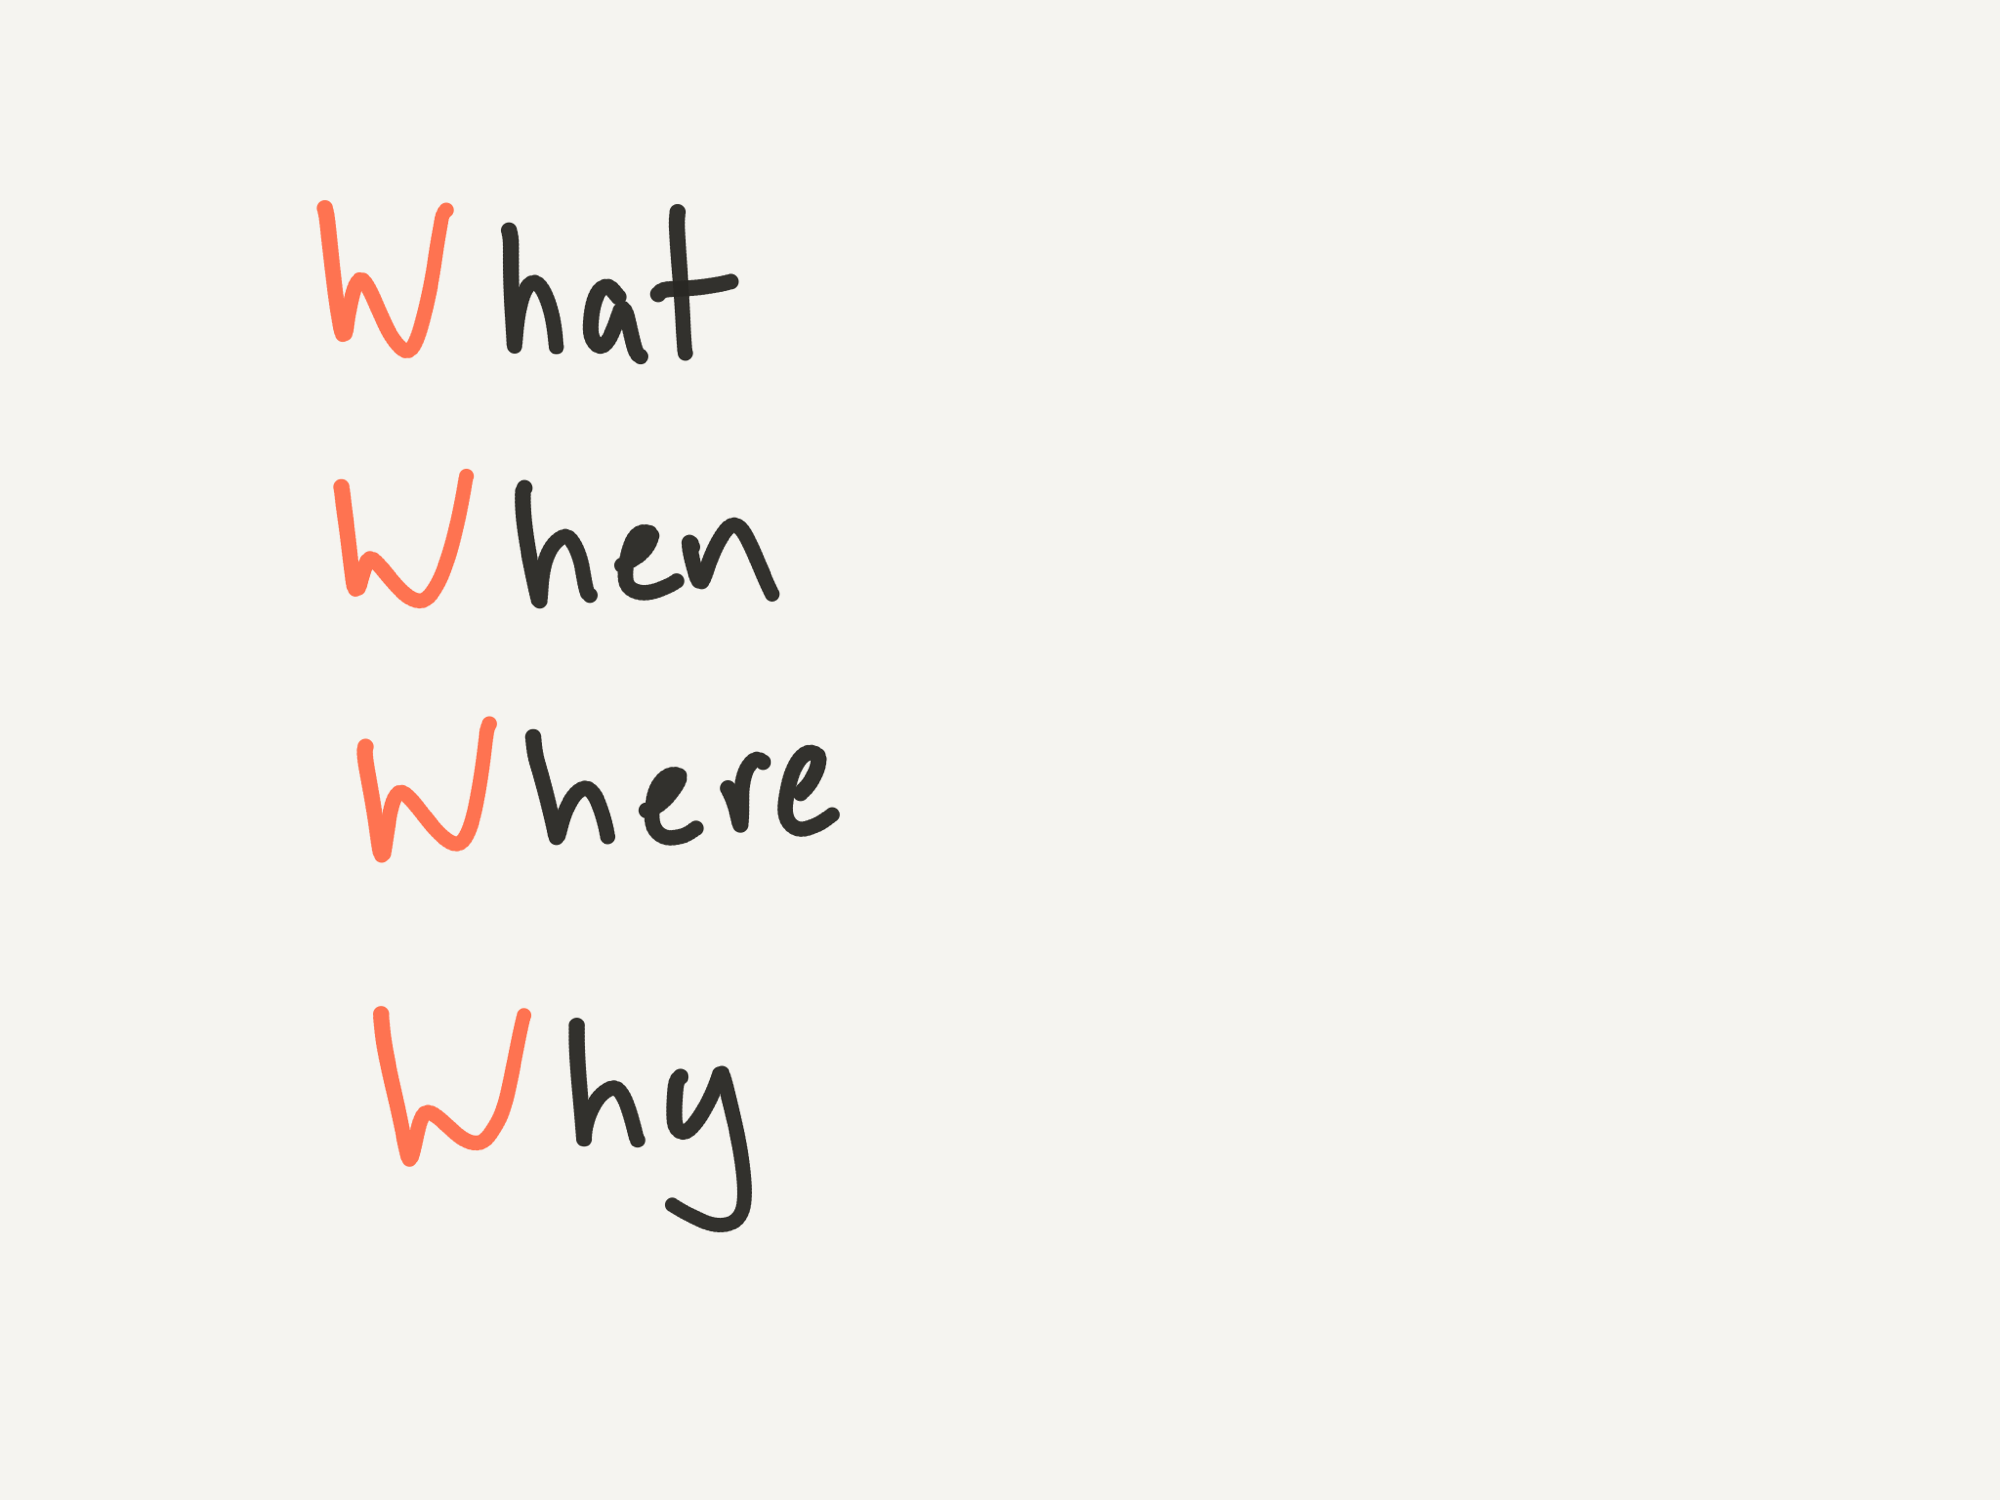 What
When
Where
Why